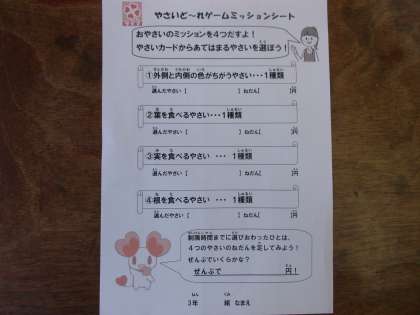 やさいど～れゲームミッションシート
おやさいのミッションを4つだすよ！
やさいカードからあてはまるやさいを選ぼう！
①外側と内側の色がちがうやさい･･･1種類
選んだやさい [ ] ねだん[ ]円
②葉を食べるやさい･･･1種類
選んだやさい [ ] ねだん[ ]円
③実を食べるやさい ･･･ 1種類
選んだやさい [ ] ねだん[ ]円
④根を食べるやさい ･･･ 1種類
選んだやさい [ ] ねだん[ ]円
制限時間までに選びおわったひとは、
4つのやさいのねだんを足してみよう！
ぜんぶでいくらかな？
ぜんぶで 円！
3年 組 なまえ